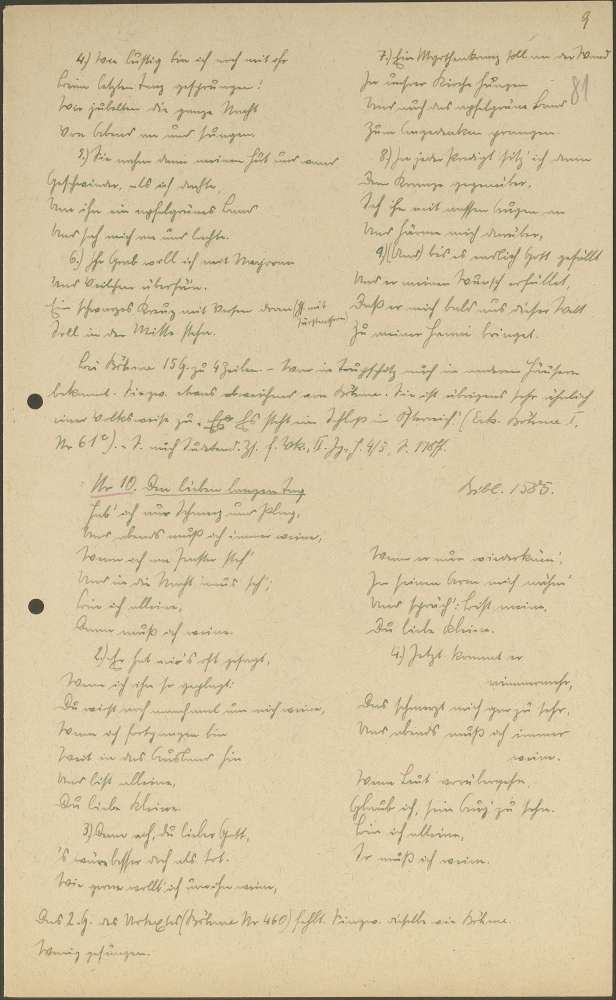 9
81
4.) Wie lustig bin ich noch mit ihr
Beim letzten Tanz gesprungen!
Wir jubelten die ganze Nacht
Von Abend an und sungen.
5.) Sie nahm dann meinen Hut und wand
Geschwinder, als ich dachte,
Um ihn ein apfelgrünes Band
Und sah mich an und lachte.
6.) Ihr Grab will ich mit Majoran
Und Veilchen übersäen.
Ein schwarzes Kreuz mit Versen dran
Soll in der Mitte stehn.
7.) Ein Myrthenkranz soll an der Wand
In unsrer Kirche hangen
Und auch das apfelgrüne Band
Zum Angedenken prangen.
8.) In jeder Predigt sitz' ich dann
Dem Kranze gegenüber,
Seh ihn mit nassen Augen an
Und härme mich darüber,
9.) (Und) bis es endlich Gott gefällt
Und er meinen Wunsch erfüllet,
Daß er mich bald aus dieser Welt
Zu meiner Hanni bringet.
Bei Böhme 15 G. zu 4 Zeilen. - War in auch in anderen Häusern
bekannt. Singw. etwas abweichend von Böhme. Sie ist übrigens sehr ähnlich
einer Volksweise zu „Es steht ein Schloß in Österreich" (Erk-Böhme I,
Nr 61c). - S. auch Sudetend. Zs. f. Vk., II. Jg., H. 4/5, S. 178ff.
Nr 10. Den lieben langen Tag
Bibl. 1585.
Hab' ich nur Schmerz und Plag,
Und abends muß ich immer weine;
Wenn ich am Fenster steh'
Und in die Nacht 'naus seh',
Bin ich alleine,
Dann muß ich weine.
2.) Er hat mir's oft gesagt,
Wenn ich ihn so geplagt:
Du wirst noch manchmal um mich weine,
Wenn ich fortgangen bin
Weit in das Ausland hin
Und bist alleine,
Du liebe Kleine.
3.) Denn ach, du lieber Gott,
's wäre besser doch als tot.
Wie gerne wollt' ich um ihn weine,
Wenn er nur wiederkäm',
In seinen Arm mich nähm'
Und spräch': Bist meine,
Du liebe Kleine.
4.) Jetzt kommet er
nimmermehr,
Das schmerzt mich gar zu sehr,
Und abends muß ich immer
weine.
Wenn Leut' vorübergehn,
Glaub ich, sein Aug' zu sehn.
Bin ich alleine,
So muß ich weine.
Das 2. G. des Urtextes (Böhme Nr 460) fehlt. Singw. dieselbe wie Böhme.
Wenig gesungen.